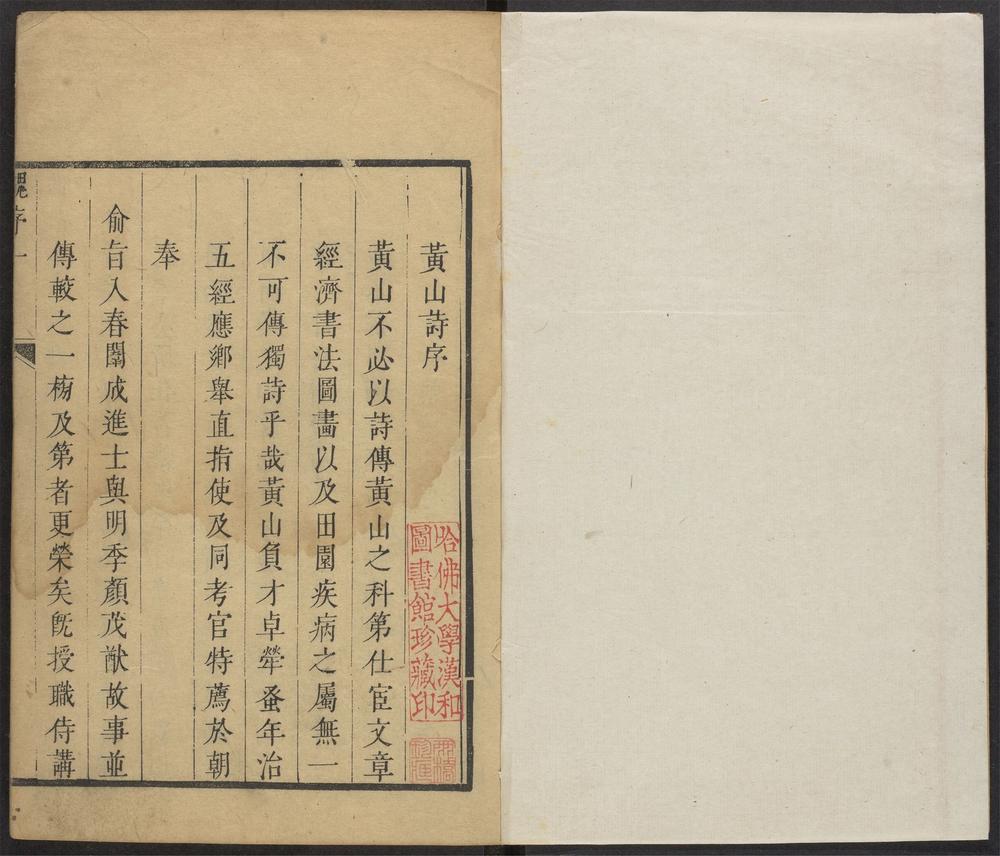 黃山詩序
黃山不必以詩傳黃山之科第仕宦文章
經濟書法圖畵以及田園疾病之屬無一
不可傳獨詩乎哉黃山負才卓犖蚤年治
五經應鄉舉直指使及同考官特薦於朝
奉
俞旨入春闈成進士與明季顏茂猷故事並
傳較之一榜及第者更榮矣旣授職侍講
序一
哈佛大學漢和
圖書館珍藏印